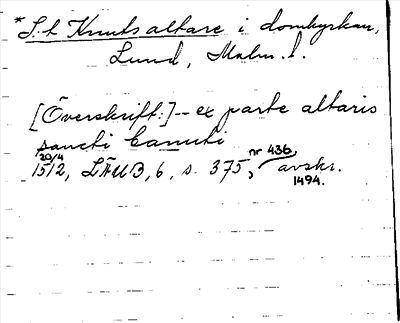 * S:t Knuts altare i domkyrkan,
Lund, Malm. l.
[Överskrift:] -- ex parte altaris
sancti Canuti
20/4
1512, LÄUB, 6, s. 375, nr 436, avskr.
1494.